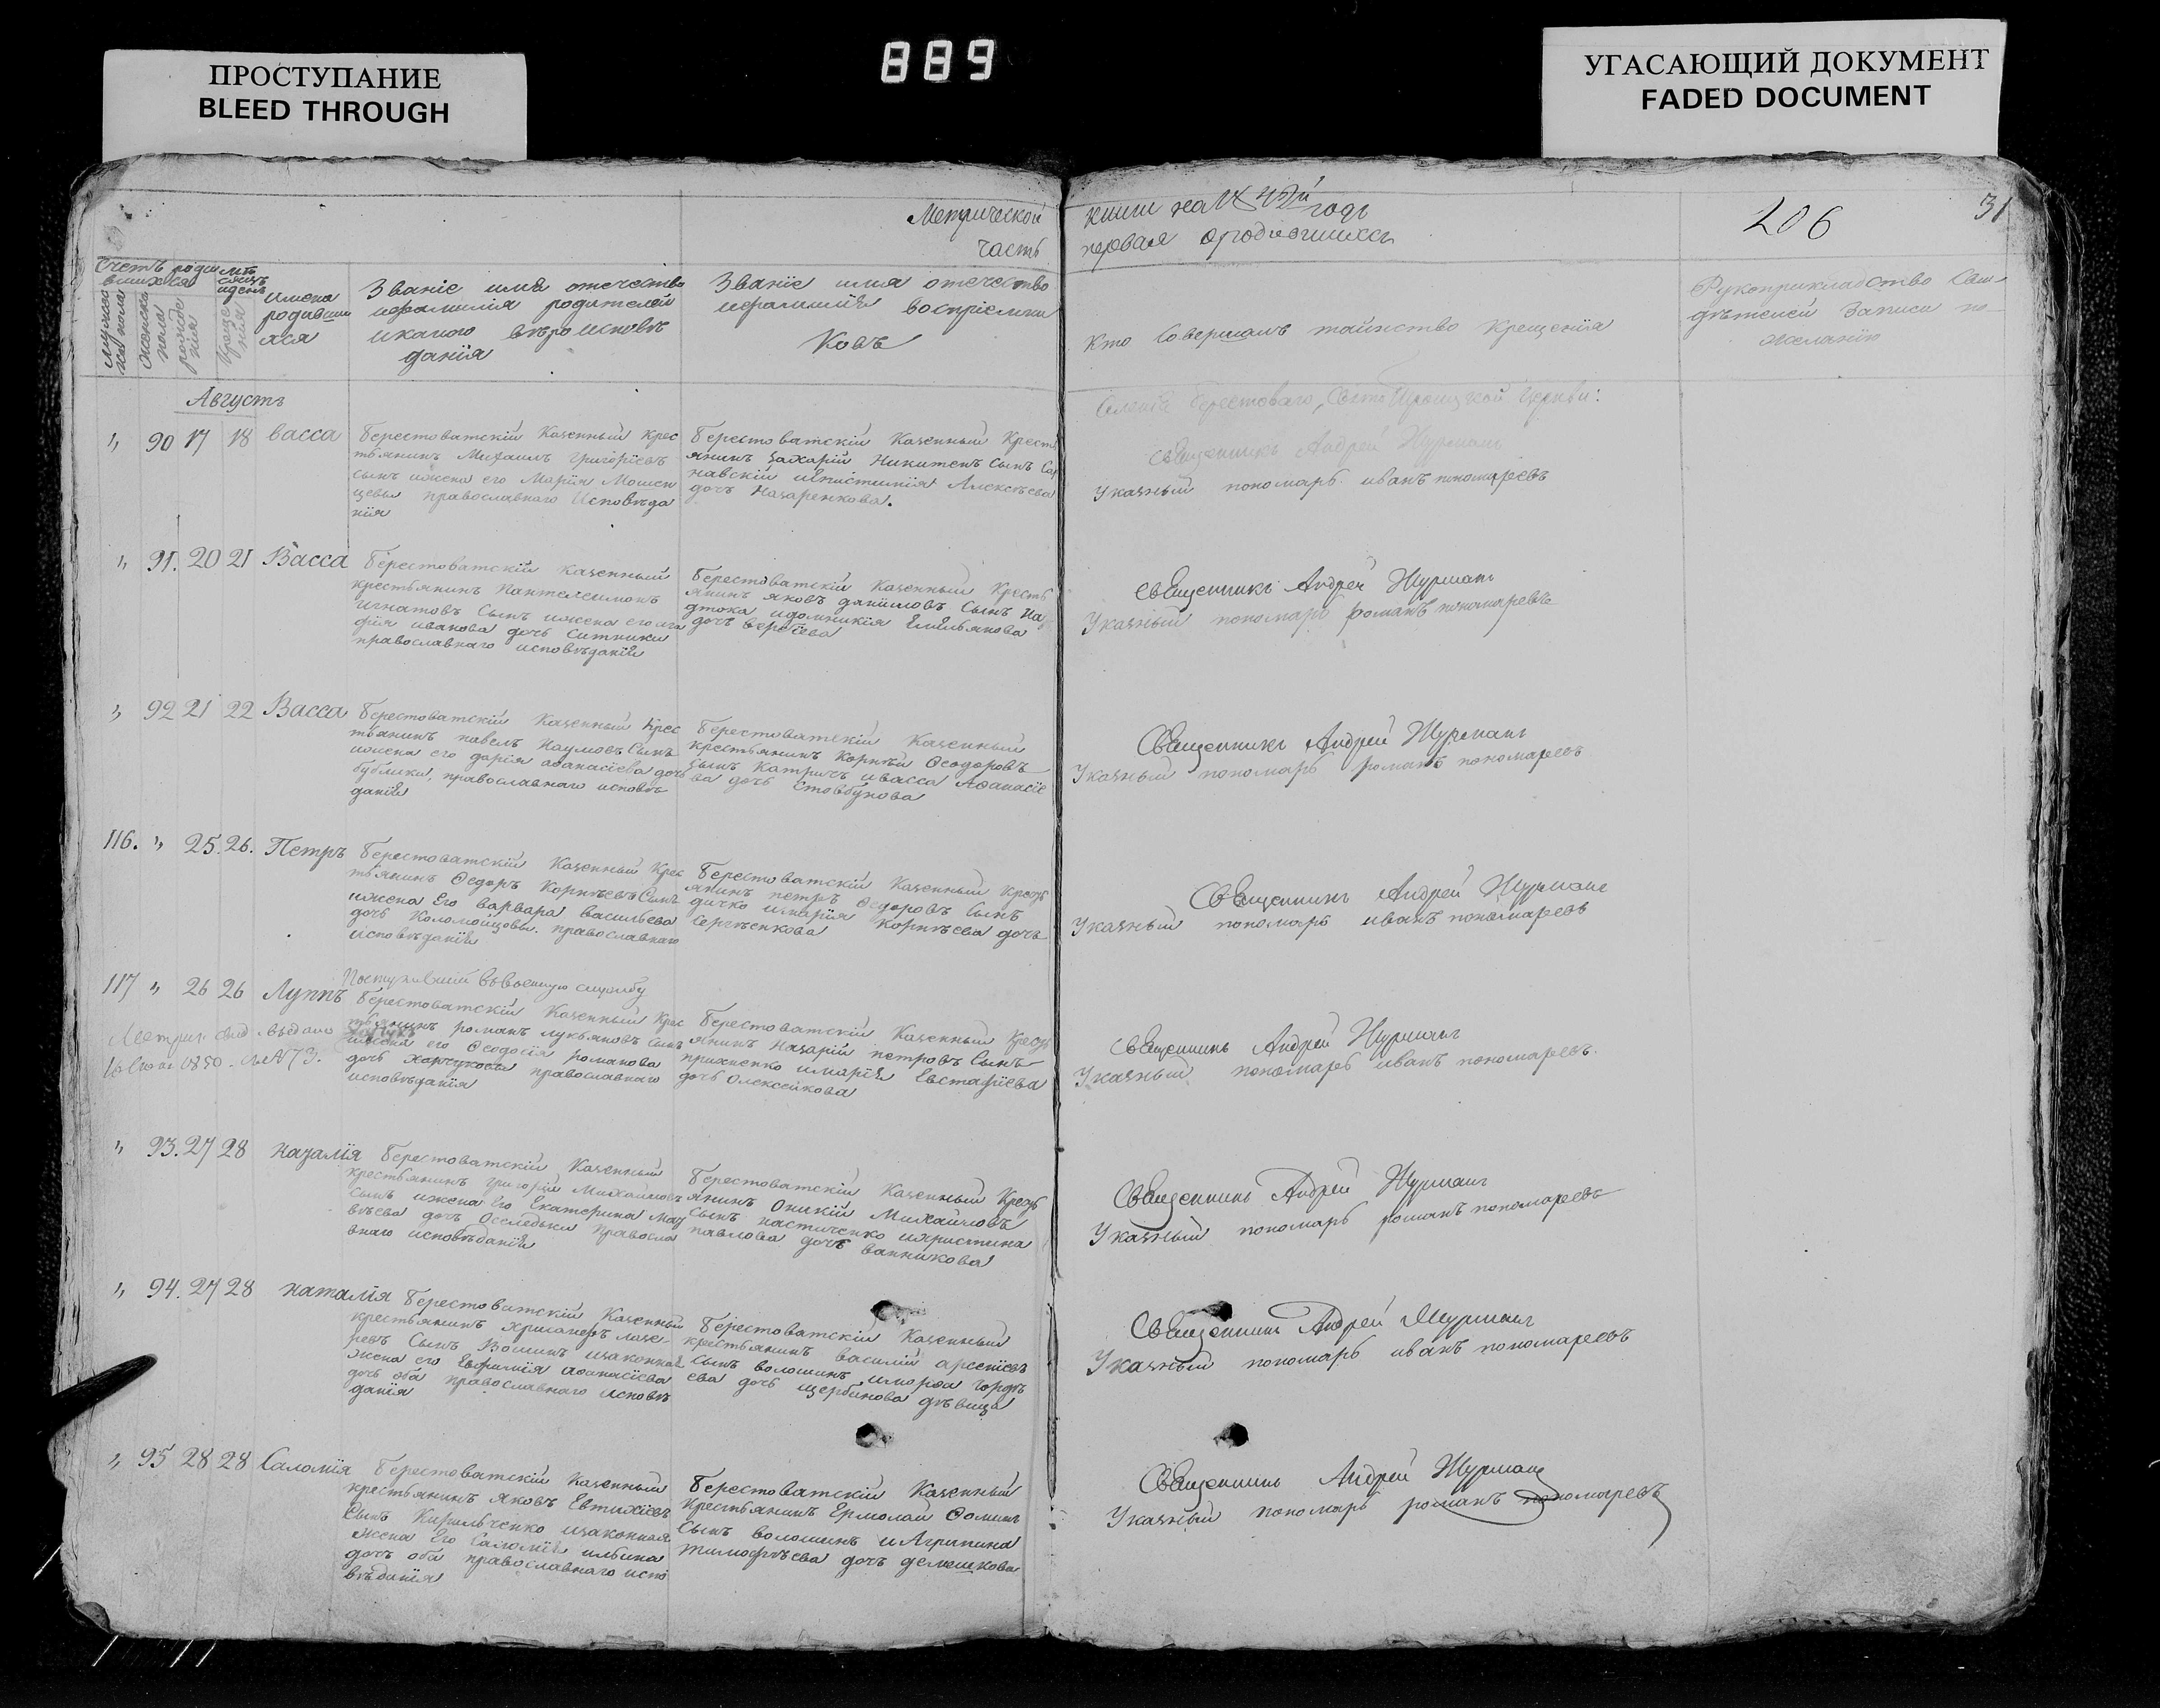 ПРОСТУПАНИЕ
BLEED THROUGH
889
УГАСАЮЩИЙ ДОКУМЕНТ
FADED DOCUMENT
Метрической
часть
книги на годъ
первая о родившихся
206
31
Счетъ роди
вшихся
мужес
каго пола
женска
пола
рожде
нія
креще
нія
имена
родивши
хся
Званіе имя отечество
и фамилія родителей
и какого вѣроисповѣ
данія
Званіе имя отечество
и фамилія воспріемни
ковъ
Кто совершалъ таинство крещенія
Рукоприкладство сви
дѣтелей записи по
желанію
Августъ
Селенія Берестоваго, Свято Троицкой церкви:
" 90 17 18 васса
Берестоватскій Казенный Крес
тьянинъ Михаилъ григоріевъ
сынъ и жена его Марія Мошен
цевы православнаго Исповѣда
нія
Берестоватскій Казенный Кресть
янинъ Захарій Никитенъ Сынъ
дочь Назаренкова.
Священникъ Андрей
Указный пономарь иванъ пономаревъ
" 91. 20 21 Васса
Берестоватскій казенный
крестьянинъ Пантелеимонъ
игнатовъ Сынъ и жена его ага
фія иванова дочь Ситники
православнаго исповѣданія
Берестоватскій Казенный Кресть
янинъ яковъ даниловъ Сынъ
и домникія Емельянова
дочь
Священникъ Андрей
Указный пономарь романъ пономаревъ
" 92 21 22 Васса
Берестоватскій Казенный Крес
тьянинъ павелъ Наумовъ Сынъ
и жена его дарія афанасіева дочь
бублики, православнаго исповѣ
данія
Берестоватскій Казенный
крестьянинъ Корнѣй Ѳеодоровъ
сынъ Катричъ и васса Афанасіе
ва дочь Стовбунова
Священникъ Андрей
Указный пономарь романъ пономаревъ
116. " 25. 26. Петръ
Берестоватскій Казенный Крес
тьянинъ Ѳедоръ Корнѣевъ Сынъ
и жена Его варвара васильева
дочь Коломойцовы. православнаго
исповѣданія
Берестоватскій Казенный Кресть
янинъ петръ Ѳедоровъ Сынъ
дичко и марія Корнѣева дочь
Сергѣенкова
Священникъ Андрей
Указный пономарь иванъ пономаревъ
117 " 26 26 Луппъ
Поступившій въ военную службу
Берестоватскій Казенный Крес
тьянинъ романъ лукьяновъ Сынъ
и жена его Ѳеодосія романова
дочь православнаго
исповѣданія
Берестоватскій Казенный Кресть
янинъ Назарій петровъ Сынъ
прихненко и марія Евстафіева
дочь Олексейкова
Священникъ Андрей
Указный пономарь иванъ пономаревъ.
Метрич. выдано
" 93. 27 28 Наталія
Берестоватскій Казенный
крестьянинъ григорій Михайловъ
сынъ и жена Его Екатерина Мат
вѣева дочь Оселедьки Правосла
внаго исповѣданія
Берестоватскій Казенный Кресть
янинъ Оникій Михайловъ
сынъ настиченко и христина
павлова дочь ванникова
Священникъ Андрей
Указный пономарь романъ пономаревъ
" 94. 27 28 Наталія
Берестоватскій Казенный
крестьянинъ
Сынъ Волшинъ и законная
жена его Евфимія афанасіева
дочь оба православнаго исповѣ
данія
Берестоватскій Казенный
крестьянинъ василій арсеніевъ
Сынъ волошинъ и марфа гордѣ
ева дочь щербинова дѣвица
Священникъ Андрей
Указный пономарь иванъ пономаревъ
" 95 28 28 Саломія
Берестоватскій Казенный
крестьянинъ яковъ Евтихіевъ
Сынъ Кирильченко и законная
жена Его Саломія ильина
дочь оба православнаго испо
вѣданія
Берестоватскій Казенный
крестьянинъ Ермолай Ѳоминъ
Сынъ волошинъ и Агрипина
тимофѣева дочь демешкова
Священникъ Андрей
Указный пономарь романъ пономаревъ